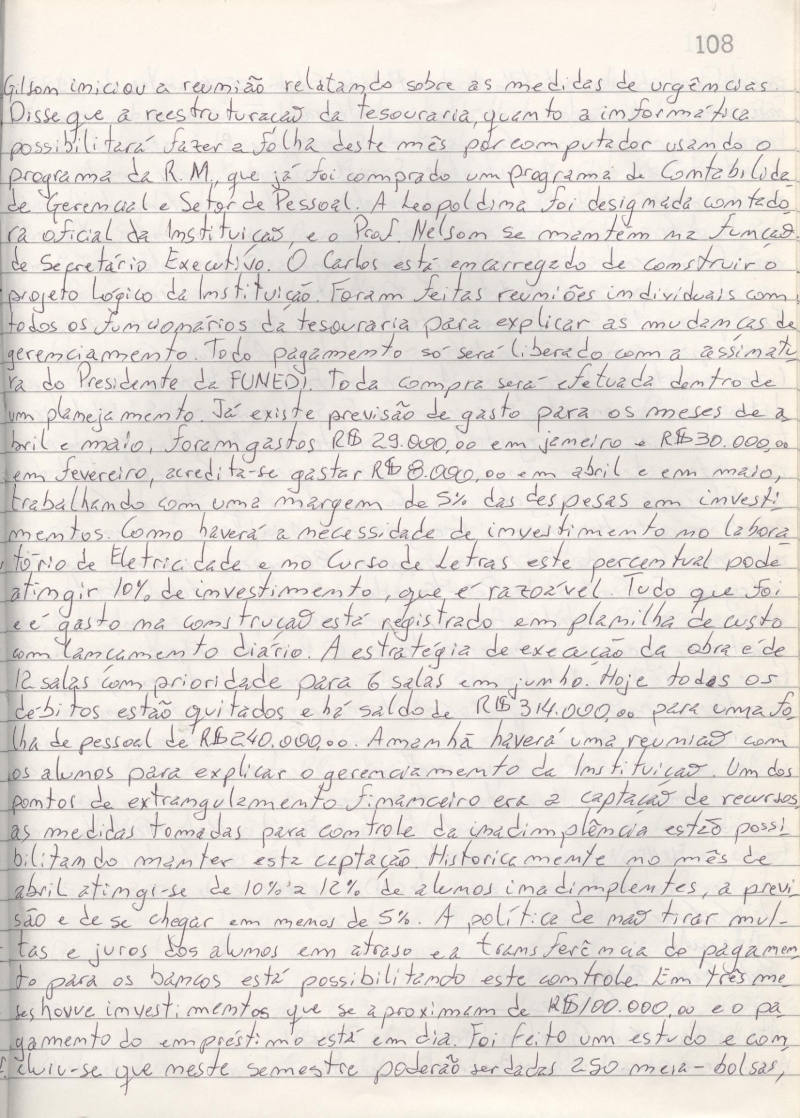 108
Gilson iniciou a reunião relatando sobre as medidas de urgências.
Disse que a reestruturação da tesouraria, quanto a informática
possibilitará fazer a folha deste mês por computador usando o
programa da R.M, que já foi comprado um programa de Contabilida
de Gerencial e Setor de Pessoal. A Leopoldina foi designada contado
ra oficial da Instituição, e o Prof. Nelson se mantém na função
de Secretário Executivo. O Carlos está encarregado de construir o
projeto Lógico da Instituição. Foram feitas reuniões individuais com
todos os funcionários da tesouraria para explicar as mudanças de
gerenciamento. Todo pagamento só será liberado com a assinatu
ra do Presidente da FUNEDI. Toda compra será efetuada dentro de
um planejamento. Já existe previsão de gasto para os meses de a
bril e maio, foram gastos R$ 29.000,00 em janeiro e R$ 30.000,00
em fevereiro, acredita-se gastar R$ 8.000,00 em abril e em maio,
trabalhando com uma margem de 5% das despesas em investi
mentos. Como haverá a necessidade de investimento no labora
tório de Eletricidade e no Curso de Letras este percentual pode
atingir 10% de investimento, que é razoável. Tudo que foi
e é gasto na construção está registrado em planilha de custo
com lançamento diário. A estratégia de execução da obra é de
12 salas com prioridade para 6 salas em junho. Hoje todos os
débitos estão quitados e há saldo de R$ 314.000,00 para uma fo
lha de pessoal de R$ 240.000,00. Amanhã haverá uma reunião com
os alunos para explicar o gerenciamento da Instituição. Um dos
pontos de extrangulamento financeiro era a captação de recursos,
as medidas tomadas para controle da inadimplência estão possi
bilitando manter esta captação. Historicamente no mês de
abril atingi-se de 10% a 12% de alunos inadimplentes, a previ
são e de se chegar em menos de 5%. A política de não tirar mul-
tas e juros dos alunos em atraso e a transferência do pagamen
to para os bancos está possibilitando este controle. Em três me
ses houve investimentos que se aproximam de R$ 100.000,00 e o pa
gamento do empréstimo está em dia. Foi feito um estudo e con
cluiu-se que neste semestre poderão ser dadas 250 meia-bolsas,